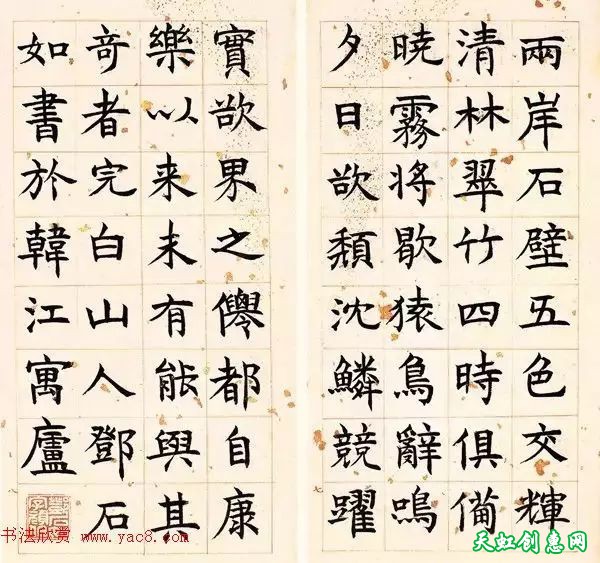 兩岸石壁五色交輝
清林翠竹四時俱備
曉霧將歇猿鳥辭鳴
夕日欲頹沈鱗競躍
實欲界之僊都自康
樂以来未有能與其
奇者完白山人鄧石
如書於韓江寓廬
书法欣赏 www.yac8.com
天虹创意网